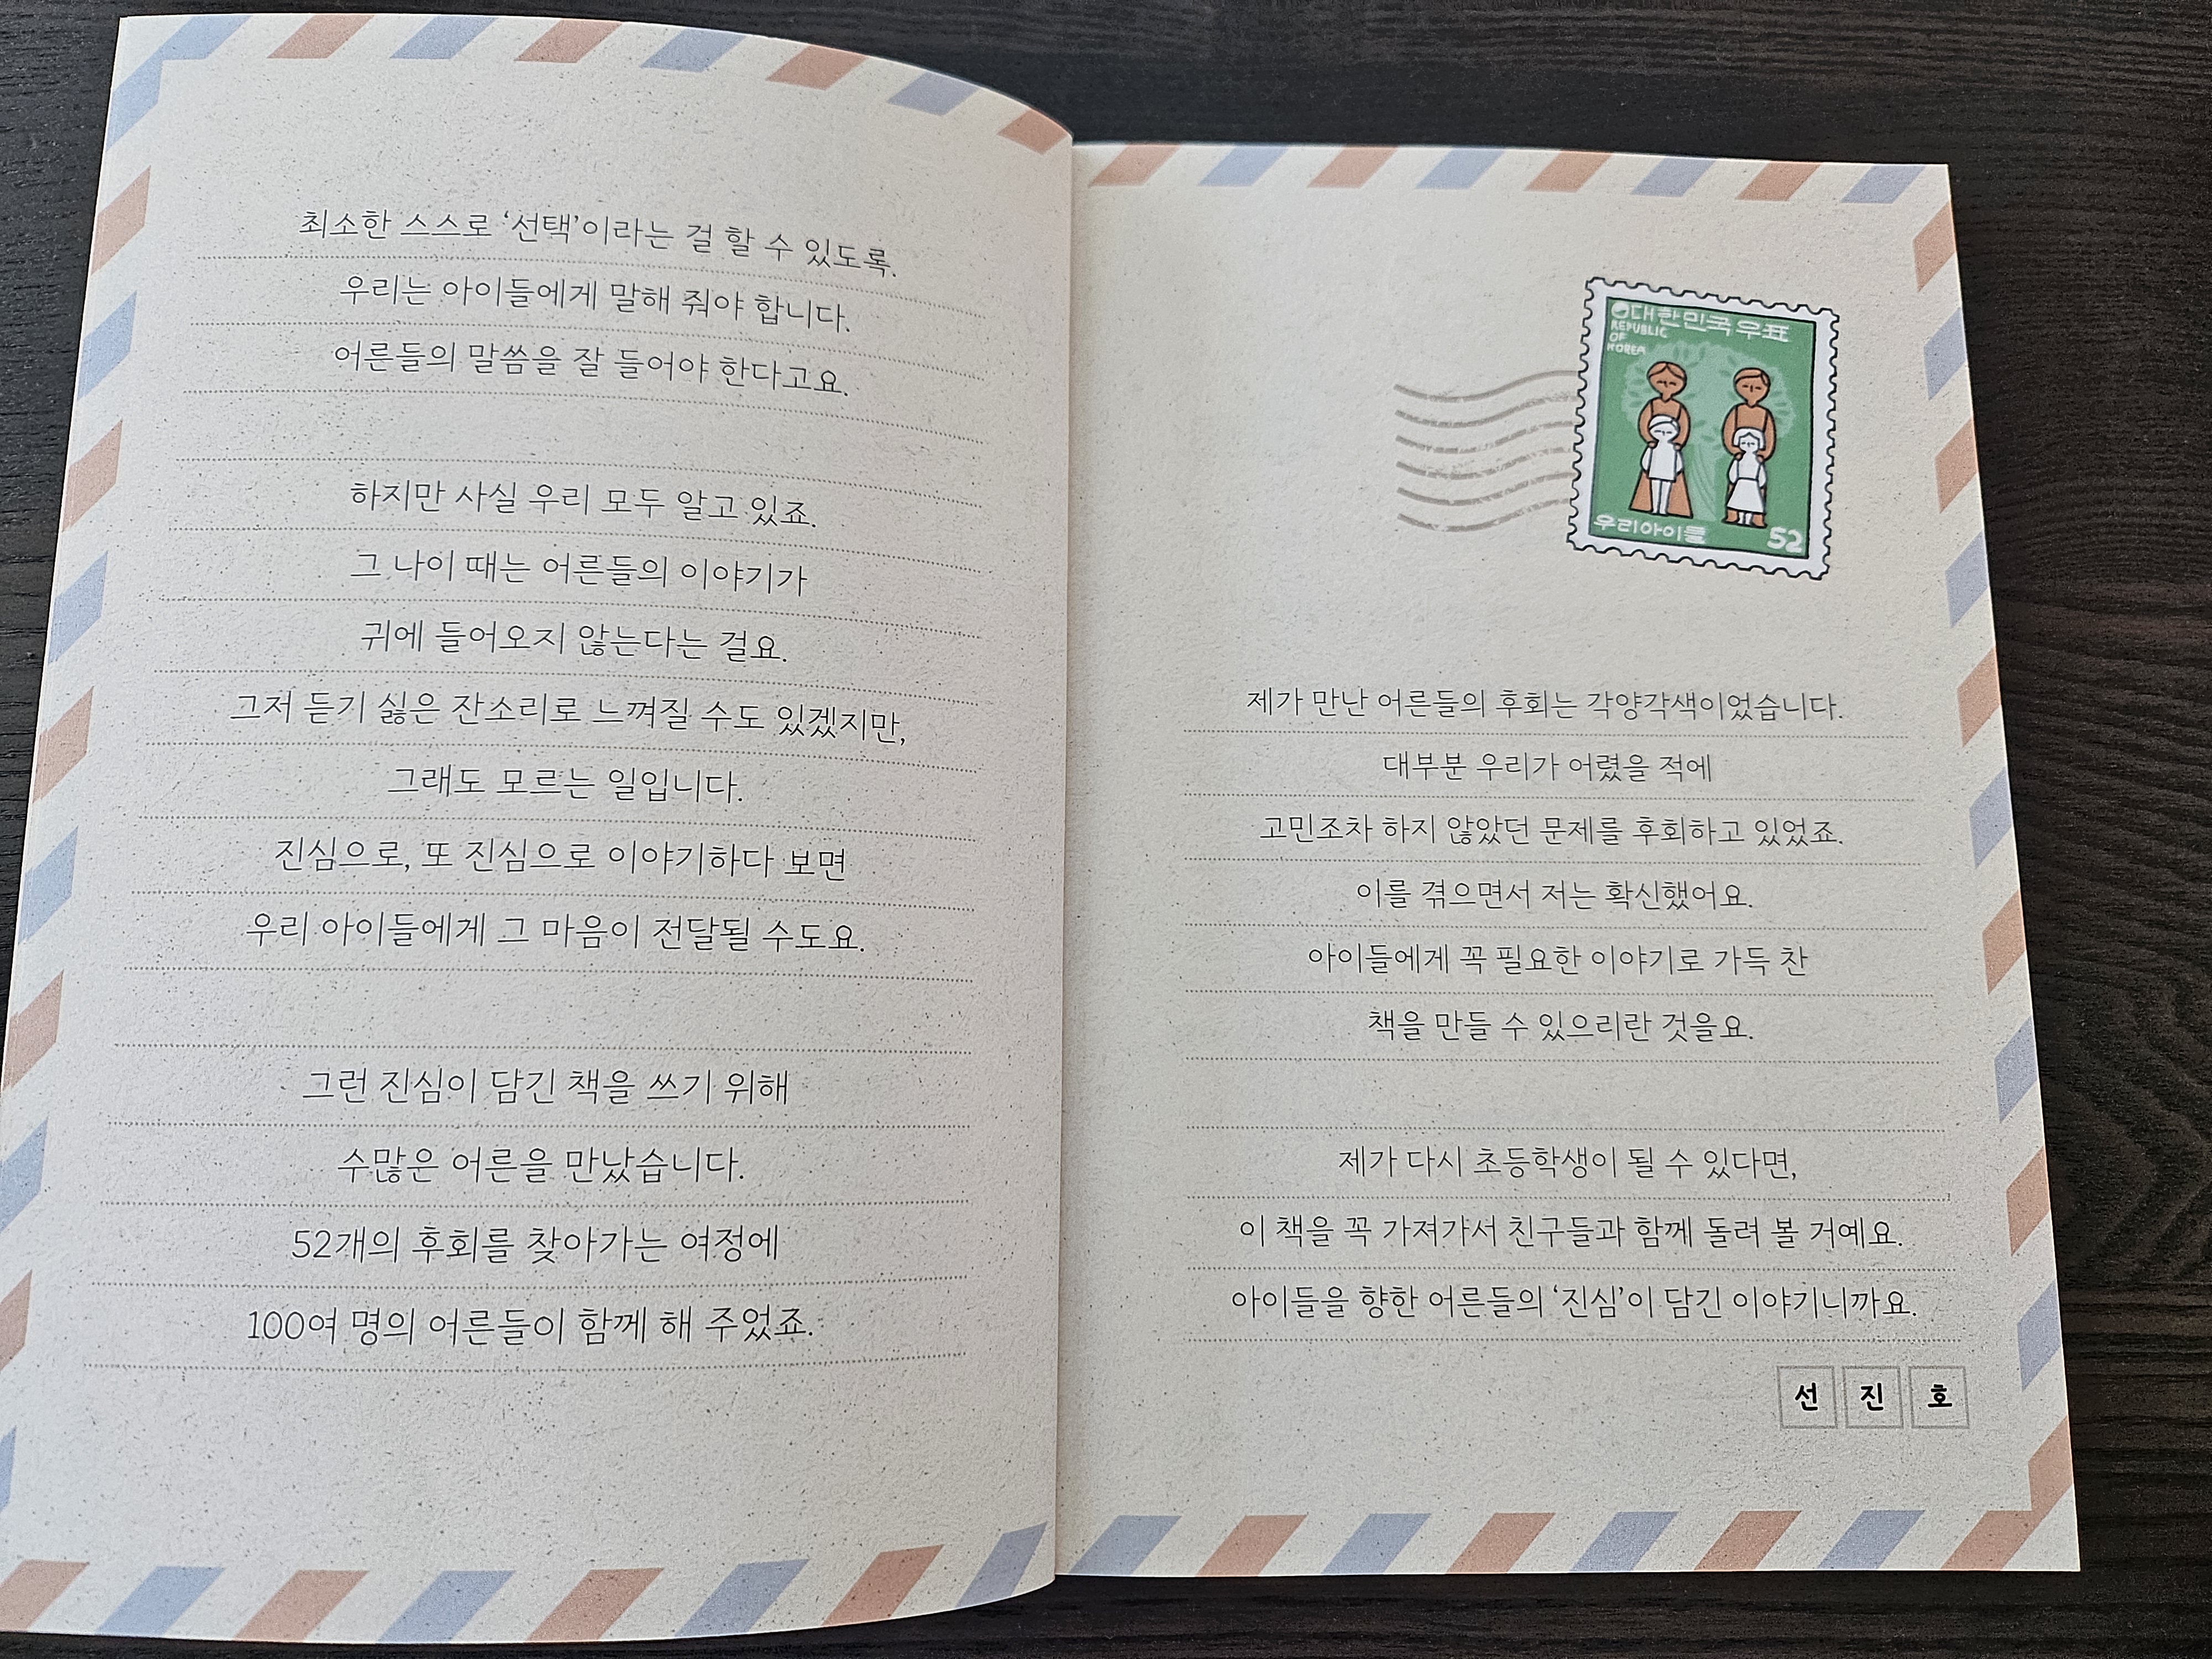 최소한 스스로 ‘선택’이라는 걸 할 수 있도록.
우리는 아이들에게 말해 줘야 합니다.
어른들의 말씀을 잘 들어야 한다고요.
하지만 사실 우리 모두 알고 있죠.
그 나이 때는 어른들의 이야기가
귀에 들어오지 않는다는 걸요.
그저 듣기 싫은 잔소리로 느껴질 수도 있겠지만,
그래도 모르는 일입니다.
진심으로, 또 진심으로 이야기하다 보면
우리 아이들에게 그 마음이 전달될 수도요.
그런 진심이 담긴 책을 쓰기 위해
수많은 어른을 만났습니다.
52개의 후회를 찾아가는 여정에
100여 명의 어른들이 함께 해 주었죠.
대한민국우표
REPUBLIC
OF
KOREA
우리아이들
52
제가 만난 어른들의 후회는 각양각색이었습니다.
대부분 우리가 어렸을 적에
고민조차 하지 않았던 문제를 후회하고 있었죠.
이를 겪으면서 저는 확신했어요.
아이들에게 꼭 필요한 이야기로 가득 찬
책을 만들 수 있으리란 것을요.
제가 다시 초등학생이 될 수 있다면,
이 책을 꼭 가져가서 친구들과 함께 돌려 볼 거예요.
아이들을 향한 어른들의 ‘진심’이 담긴 이야기니까요.
선진호